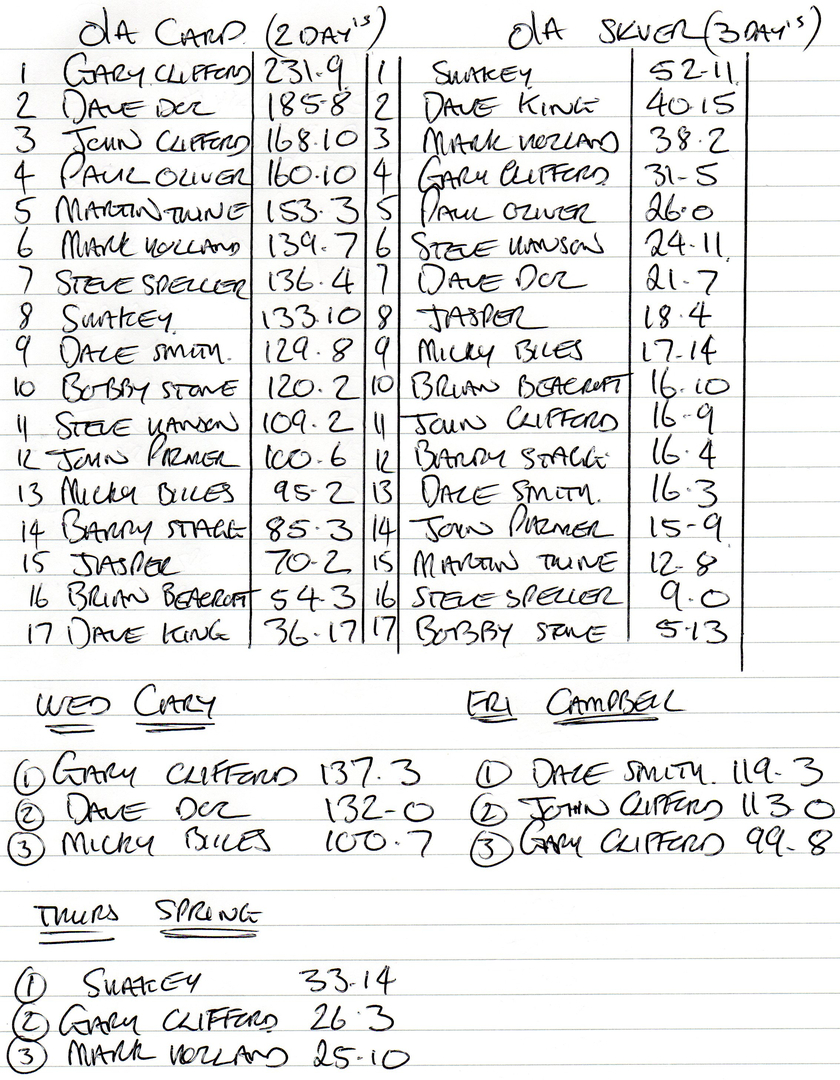 O/A CARP. (2 DAY'S) O/A SILVER (3 DAY'S)
1 GARY CLIFFORD 231-9 1 SWAKEY 52-11
2 DAVE DOR 185-8 2 DAVE KING 40-15
3 JOHN CLIFFORD 168-10 3 MARK HOLLAND 38-2
4 PAUL OLIVER 160-10 4 GARY CLIFFORD 31-5
5 MARTIN TWINE 153-3 5 PAUL OLIVER 26-0
6 MARK HOLLAND 139-7 6 STEVE HANSON 24-11
7 STEVE SPELLER 136-4 7 DAVE DOR 21-7
8 SWAKEY 133-10 8 JASPER 18-4
9 DALE SMITH. 129-8 9 MICKY BILES 17-14
10 BOBBY STONE 120-2 10 BRIAN BEACROFT 16-10
11 STEVE HANSON 109-2 11 JOHN CLIFFORD 16-9
12 JOHN PARMER 100-6 12 BARRY STAGG 16-4
13 MICKY BILES 95-2 13 DALE SMITH. 16-3
14 BARRY STAGG 85-3 14 JOHN PARMER 15-9
15 JASPER 70-2 15 MARTIN TWINE 12-8
16 BRIAN BEACROFT 54-3 16 STEVE SPELLER 9-0
17 DAVE KING 36-17 17 BOBBY STONE 5-13
WED CARY FRI CAMPBELL
1 GARY CLIFFORD 137-3 1 DALE SMITH. 119-3
2 DAVE DOR 132-0 2 JOHN CLIFFORD 113-0
3 MICKY BILES 100-7 3 GARY CLIFFORD 99-8
THURS SPRING
1 SWAKEY 33-14
2 GARY CLIFFORD 26-3
3 MARK HOLLAND 25-10